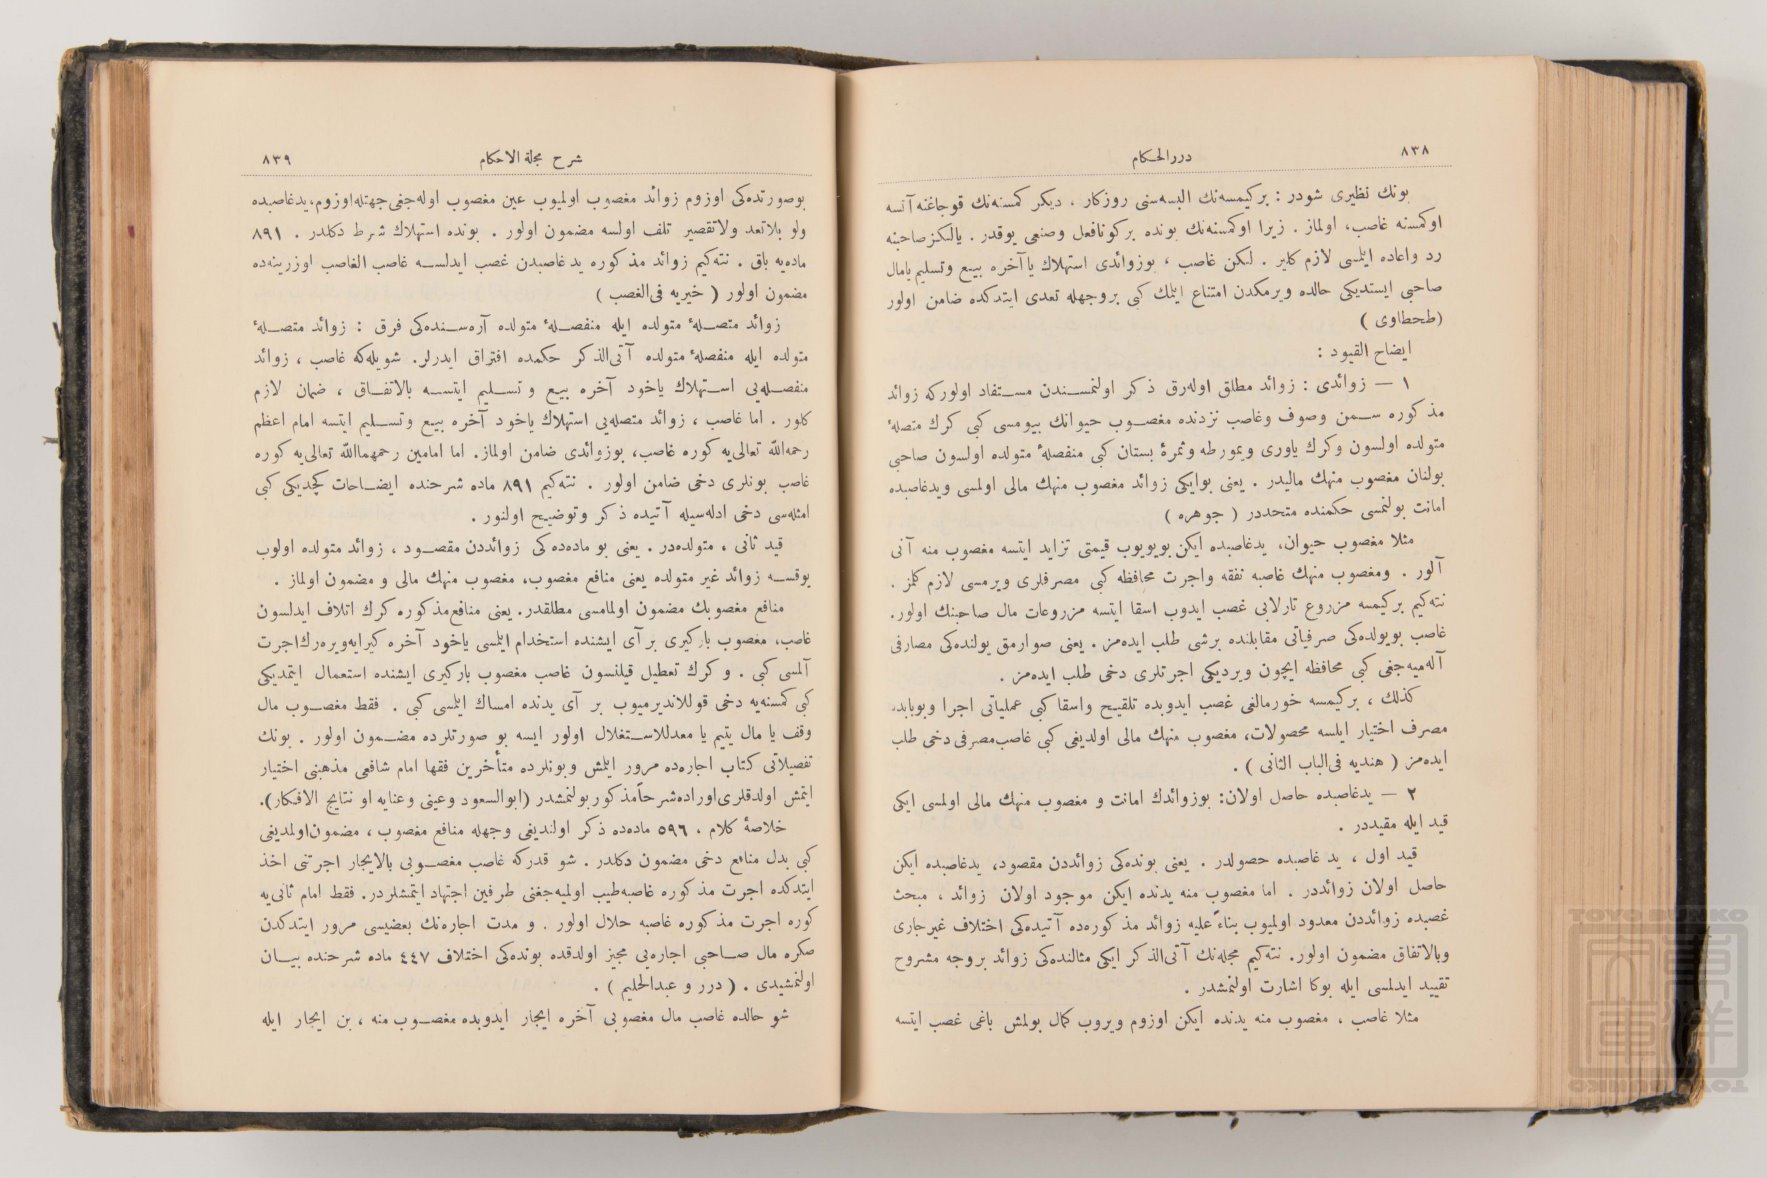 ٨٣٨
دررالحكام
بونك نظيرى شودر : بركيمسه‌نك البسه‌سنى روزكار ، ديكر كمسنه‌نك قوجاغنه آتسه
اوكمسنه غاصب، اولماز . زيرا اوكمسنه‌نك بونده بركونافعل وصنعى يوقدر . يالكز صاحبنه
رد واعاده ايتلمسى لازم كلير . لكن غاصب ، بوزوائدى استهلاك يا آخره بيع وتسليم يامال
صاحبى ايستديكى حالده ويرمكدن امتناع ايتمك كبى بروجهله تعدى ايتدكده ضامن اولور
(طحطاوى )
ايضاح القيود :
١ — زوائدى : زوائد مطلق اوله‌رق ذكر اولنمسندن مستفاد اولوركه زوائد
مذكوره سمن وصوف وغاصب نزدنده مغصوب حيوانك بيومسى كبى كرك متصلهٔ
متولده اولسون وكرك ياورى ويمورطه وثمرهٔ بستان كبى منفصلهٔ متولده اولسون صاحبى
بولنان مغصوب منهك ماليدر . يعنى بوايكى زوائد مغصوب منهك مالى اولمسى ويدغاصبده
امانت بولنمسى حكمنده متحددر ( جوهره )
مثلا مغصوب حيوان، يدغاصبده ايكن بويويوب قيمتى تزايد ايتسه مغصوب منه آنى
آلور . ومغصوب منهك غاصبه نفقه واجرت محافظه كبى مصرفلرى ويرمسى لازم كلمز .
نته‌كيم بركيمسه مزروع تارلايى غصب ايدوب اسقا ايتسه مزروعات مال صاحبنك اولور.
غاصب بويولده‌كى صرفياتى مقابلنده برشى طلب ايده‌مز . يعنى صوارمق يولنده‌كى مصارفى
آله‌ميه‌جغى كبى محافظه ايچون ويرديكى اجرتلرى دخى طلب ايده‌مز .
كذلك ، بركيمسه خورمالغى غصب ايدوبده تلقيح واسقا كبى عملياتى اجرا وبوبابده
مصرف اختيار ايلسه محصولات، مغصوب منهك مالى اولديغى كبى غاصب مصرفى دخى طلب
ايده‌مز ( هنديه فى‌الباب الثانى ) .
٢ — يدغاصبده حاصل اولان: بوزوائدك امانت و مغصوب منهك مالى اولمسى ايكى
قيد ايله مقيددر .
قيد اول ، يد غاصبده حصولدر . يعنى بونده‌كى زوائددن مقصود، يدغاصبده ايكن
حاصل اولان زوائددر . اما مغصوب منه يدنده ايكن موجود اولان زوائد ، مبحث
غصبده زوائددن معدود اولميوب بناءً عليه زوائد مذكوره‌ده آتيده‌كى اختلاف غيرجارى
وبالاتفاق مضمون اولور. نته‌كيم مجله‌نك آتى‌الذكر ايكى مثالنده‌كى زوائد بروجه مشروح
تقييد ايدلمسى ايله بوكا اشارت اولنمشدر .
مثلا غاصب ، مغصوب منه يدنده ايكن اوزوم ويروب كمال بولمش باغى غصب ايتسه
شرح مجلة الاحكام
٨٣٩
بوصورتده‌كى اوزوم زوائد مغصوب اولميوب عين مغصوب اوله‌جغى جهتله اوزوم، يدغاصبده
ولو بلاتعد ولاتقصير تلف اولسه مضمون اولور . بونده استهلاك شرط دكلدر . ٨٩١
ماده‌يه باق . نته‌كيم زوائد مذكوره يد غاصبدن غصب ايدلسه غاصب الغاصب اوزرينه‌ده
مضمون اولور ( خيريه فى‌الغصب )
زوائد متصلهٔ متولده ايله منفصلهٔ متولده آره‌سنده‌كى فرق : زوائد متصلهٔ
متولده ايله منفصلهٔ متولده آتى‌الذكر حكمده افتراق ايدرلر. شويله‌كه غاصب ، زوائد
منفصله‌يى استهلاك ياخود آخره بيع وتسليم ايتسه بالاتفاق ، ضمان لازم
كلور . اما غاصب ، زوائد متصله‌يى استهلاك ياخود آخره بيع وتسليم ايتسه امام اعظم
رحمه‌الله تعالى‌يه كوره غاصب، بوزوائدى ضامن اولماز. اما امامين رحمهماالله تعالى‌يه كوره
غاصب بونلرى دخى ضامن اولور . نته‌كيم ٨٩١ ماده شرحنده ايضاحات كچديكى كبى
امثله‌سى دخى ادله‌سيله آتيده ذكر وتوضيح اولنور .
قيد ثانى ، متولده‌در . يعنى بو ماده‌ده‌كى زوائددن مقصود ، زوائد متولده اولوب
يوقسه زوائد غير متولده يعنى منافع مغصوب، مغصوب منهك مالى و مضمون اولماز .
منافع مغصوبك مضمون اولمامسى مطلقدر. يعنى منافع مذكوره كرك اتلاف ايدلسون
غاصب، مغصوب باركيرى بر آى ايشنده استخدام ايتلمسى ياخود آخره كيرايه‌ويره‌رك اجرت
آلمسى كبى . و كرك تعطيل قيلنسون غاصب مغصوب باركيرى ايشنده استعمال ايتمديكى
كبى كمسنه‌يه دخى قوللانديرميوب بر آى يدنده امساك ايتلمسى كبى . فقط مغصوب مال
وقف يا مال يتيم يا معدللاستغلال اولور ايسه بو صورتلرده مضمون اولور . بونك
تفصيلاتى كتاب اجاره‌ده مرور ايتمش وبونلرده متأخرين فقها امام شافعى مذهبنى اختيار
ايتمش اولدقلرى اوراده شرحاًمذكور بولنمشدر (ابوالسعود وعينى وعنايه او نتايج الافكار).
خلاصهٔ كلام ، ٥٩٦ ماده‌ده ذكر اولنديغى وجهله منافع مغصوب ، مضمون اولمديغى
كبى بدل منافع دخى مضمون دكلدر . شو قدركه غاصب مغصوبى بالايجار اجرتنى اخذ
ايتدكده اجرت مذكوره غاصبه‌طيب اولميه‌جغنى طرفين اجتهاد ايتمشلردر. فقط امام ثانى‌يه
كوره اجرت مذكوره غاصبه حلال اولور . و مدت اجاره‌نك بعضيسى مرور ايتدكدن
صكره مال صاحبى اجاره‌يى مجيز اولدقده بونده‌كى اختلاف ٤٤٧ ماده شرحنده بيان
اولنمشيدى . ( درر و عبدالحليم ) .
شو حالده غاصب مال مغصوبى آخره ايجار ايدوبده مغصوب منه ، بن ايجار ايله
TOYO BUNKO